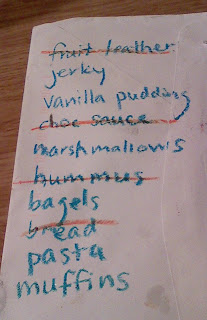 fruit leather
jerky
Vanilla pudding
choc sauce
marshmallows
hummus
bagels
bread
pasta
muffins